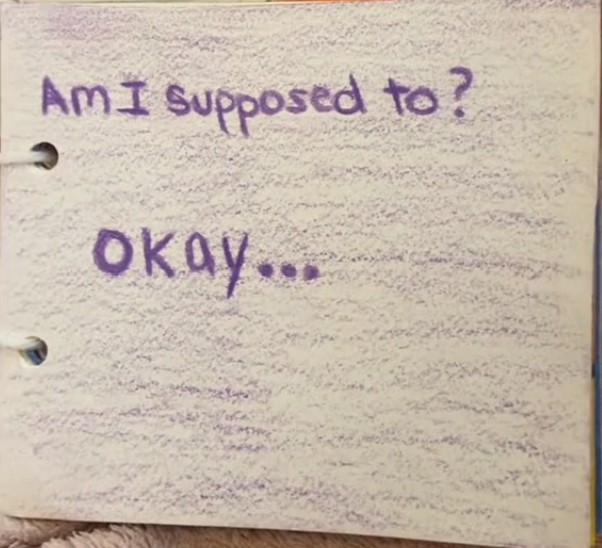 Am I supposed to?
okay...